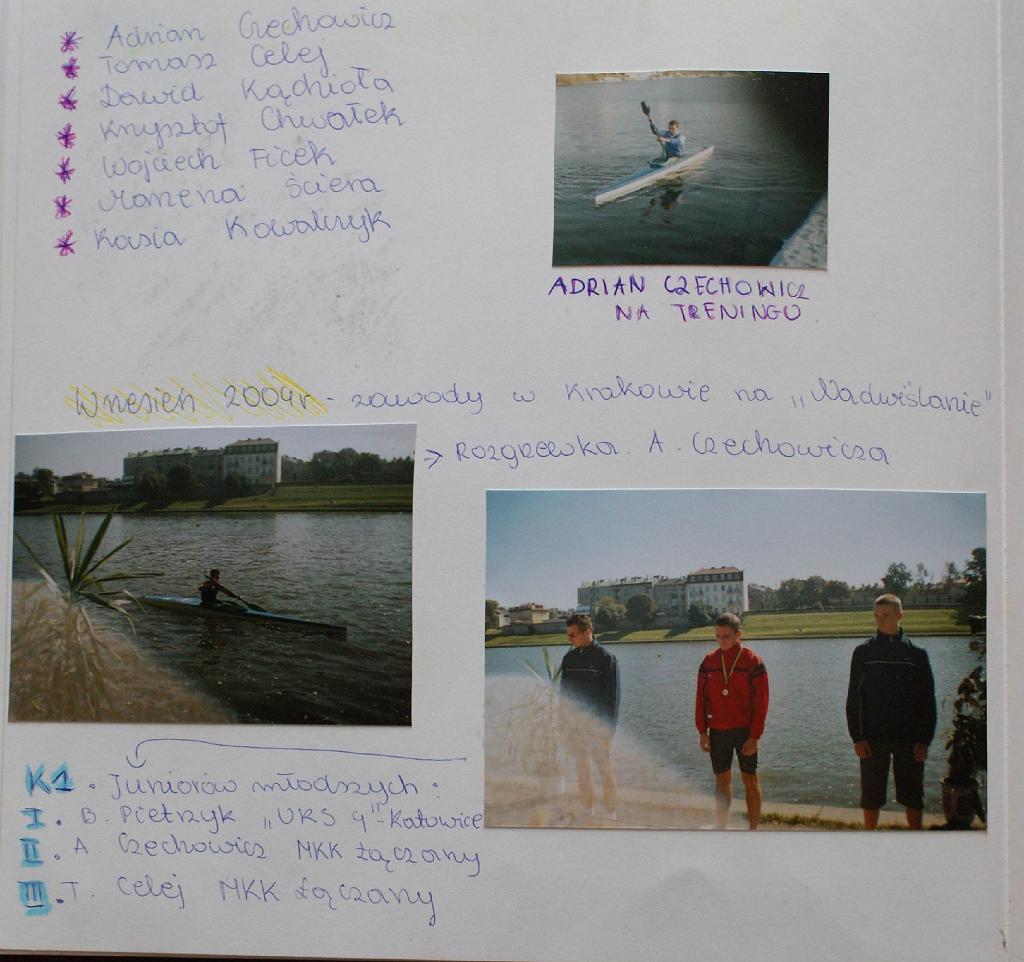 * Adrian Czechowicz
* Tomasz Celej
* Dawid Kądzioła
* Krzysztof Chwałek
* Wojciech Ficek
* Marzena Ściera
* Kasia Kowalczyk
ADRIAN CZECHOWICZ
NA TRENINGU
Wrzesień 2004r - zawody w Krakowie na „Nadwiślanie"
→ Rozgrzewka A. Czechowicza
K1. Juniorów młodszych:
I. B. Pietrzyk „UKS 4"-Katowice
II. A. Czechowicz MKK Łączany
III. T. Celej MKK Łączany